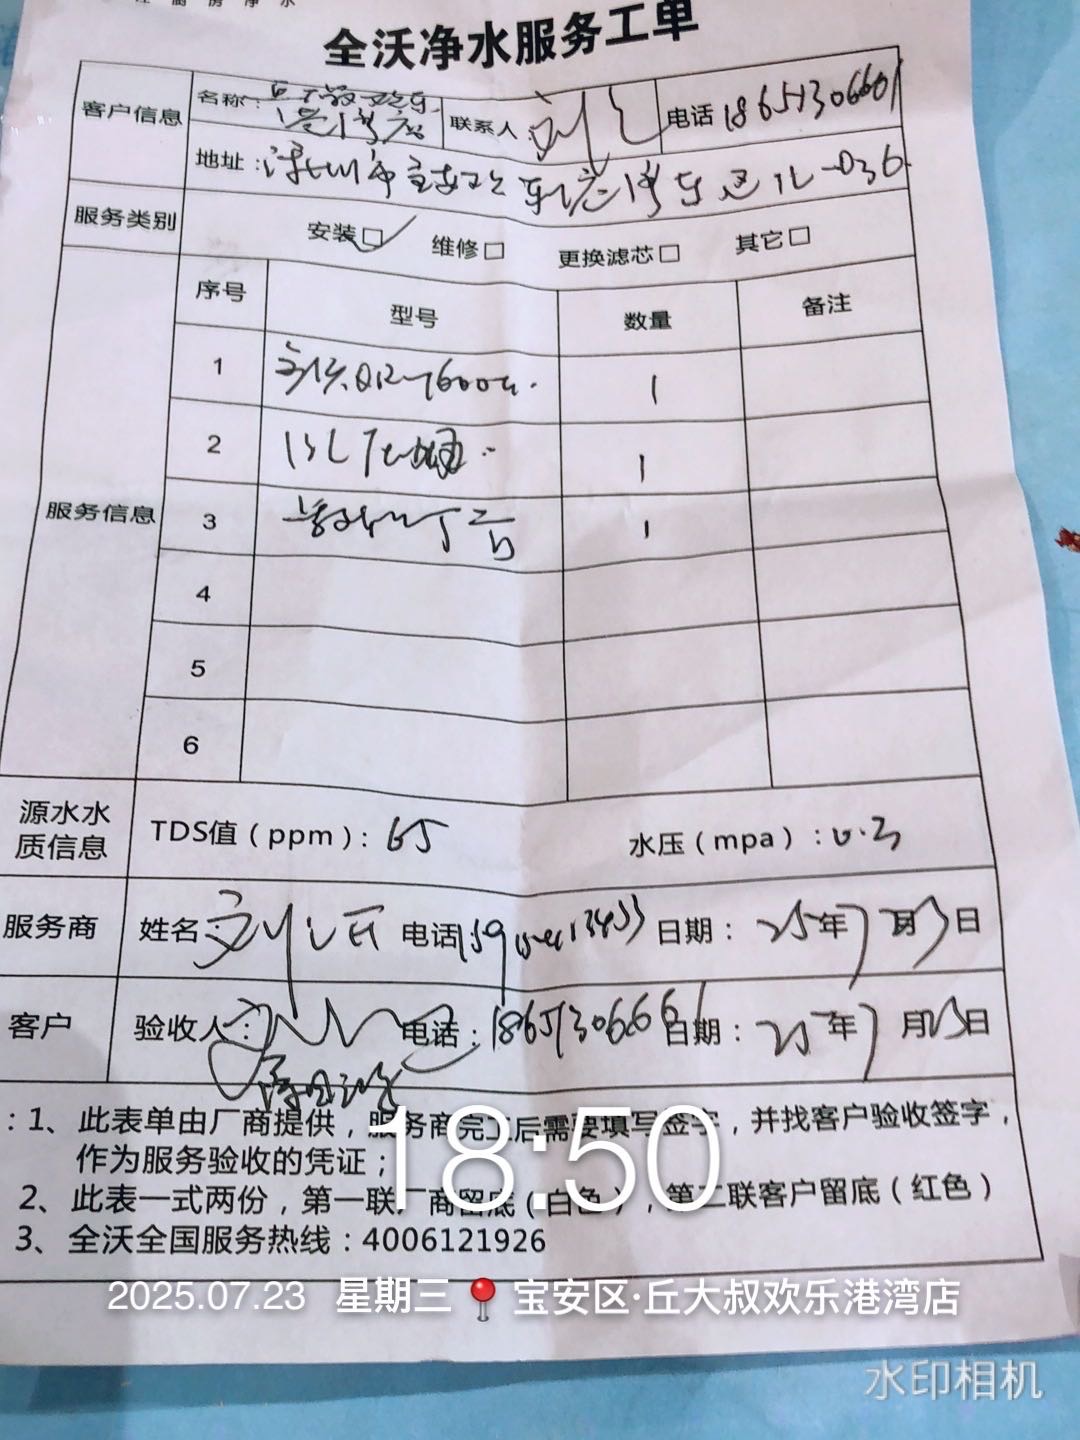 全沃净水服务工单
客户信息 名称：丘大叔欢乐港湾店 联系人：刘 电话 18651306601
地址：深圳市宝安区 东 L1-036
服务类别 安装☑ 维修□ 更换滤芯□ 其它□
服务信息 序号 型号 数量 备注
1 1
2 1
3 1
4
5
6
源水水质信息 TDS值（ppm）：65 水压（mpa）：0.3
服务商 姓名：刘 电话 日期：25年7月23日
客户 验收人：刘 电话：18651306601 日期：25年7月23日
：1、此表单由厂商提供，服务商完工后需要填写签字，并找客户验收签字，
作为服务验收的凭证；
2、此表一式两份，第一联厂商留底（白色），第二联客户留底（红色）
3、全沃全国服务热线：4006121926
18:50
2025.07.23 星期三 宝安区·丘大叔欢乐港湾店
水印相机